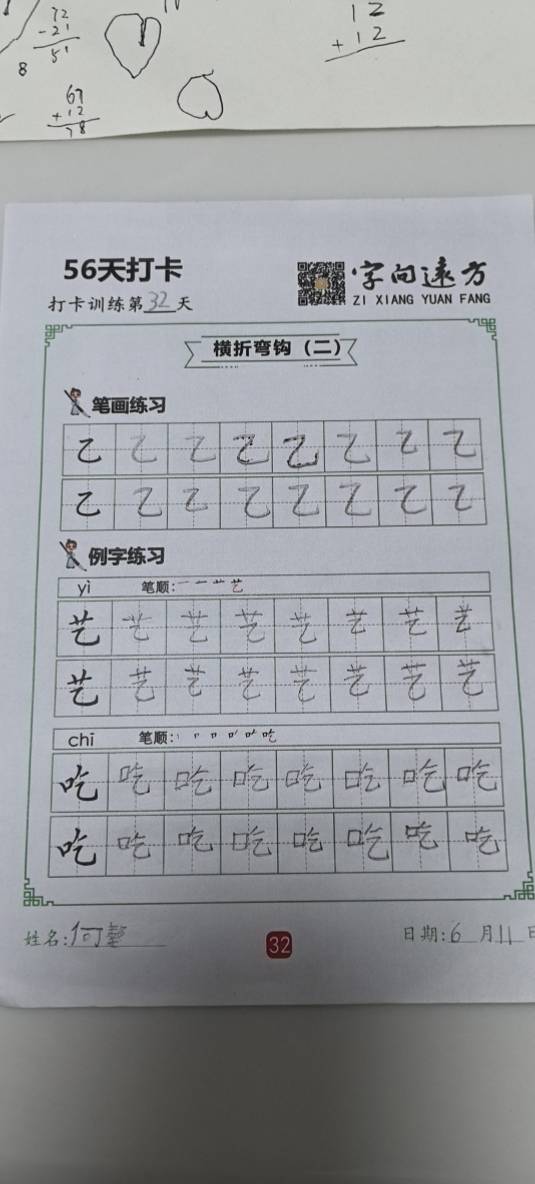 72
-21
51
8
67
+12
78
12
+12
56天打卡
打卡训练第32天
字向远方
ZI XIANG YUAN FANG
横折弯钩（二）
笔画练习
乙 乙 乙 乙 乙 乙 乙 乙
乙 乙 乙 乙 乙 乙 乙 乙
例字练习
yì 笔顺: 艺
艺 艺 艺 艺 艺 艺 艺 艺
艺 艺 艺 艺 艺 艺 艺 艺
chī 笔顺: 吃
吃 吃 吃 吃 吃 吃 吃 吃
吃 吃 吃 吃 吃 吃 吃 吃
姓名:何
32
日期:6月11日